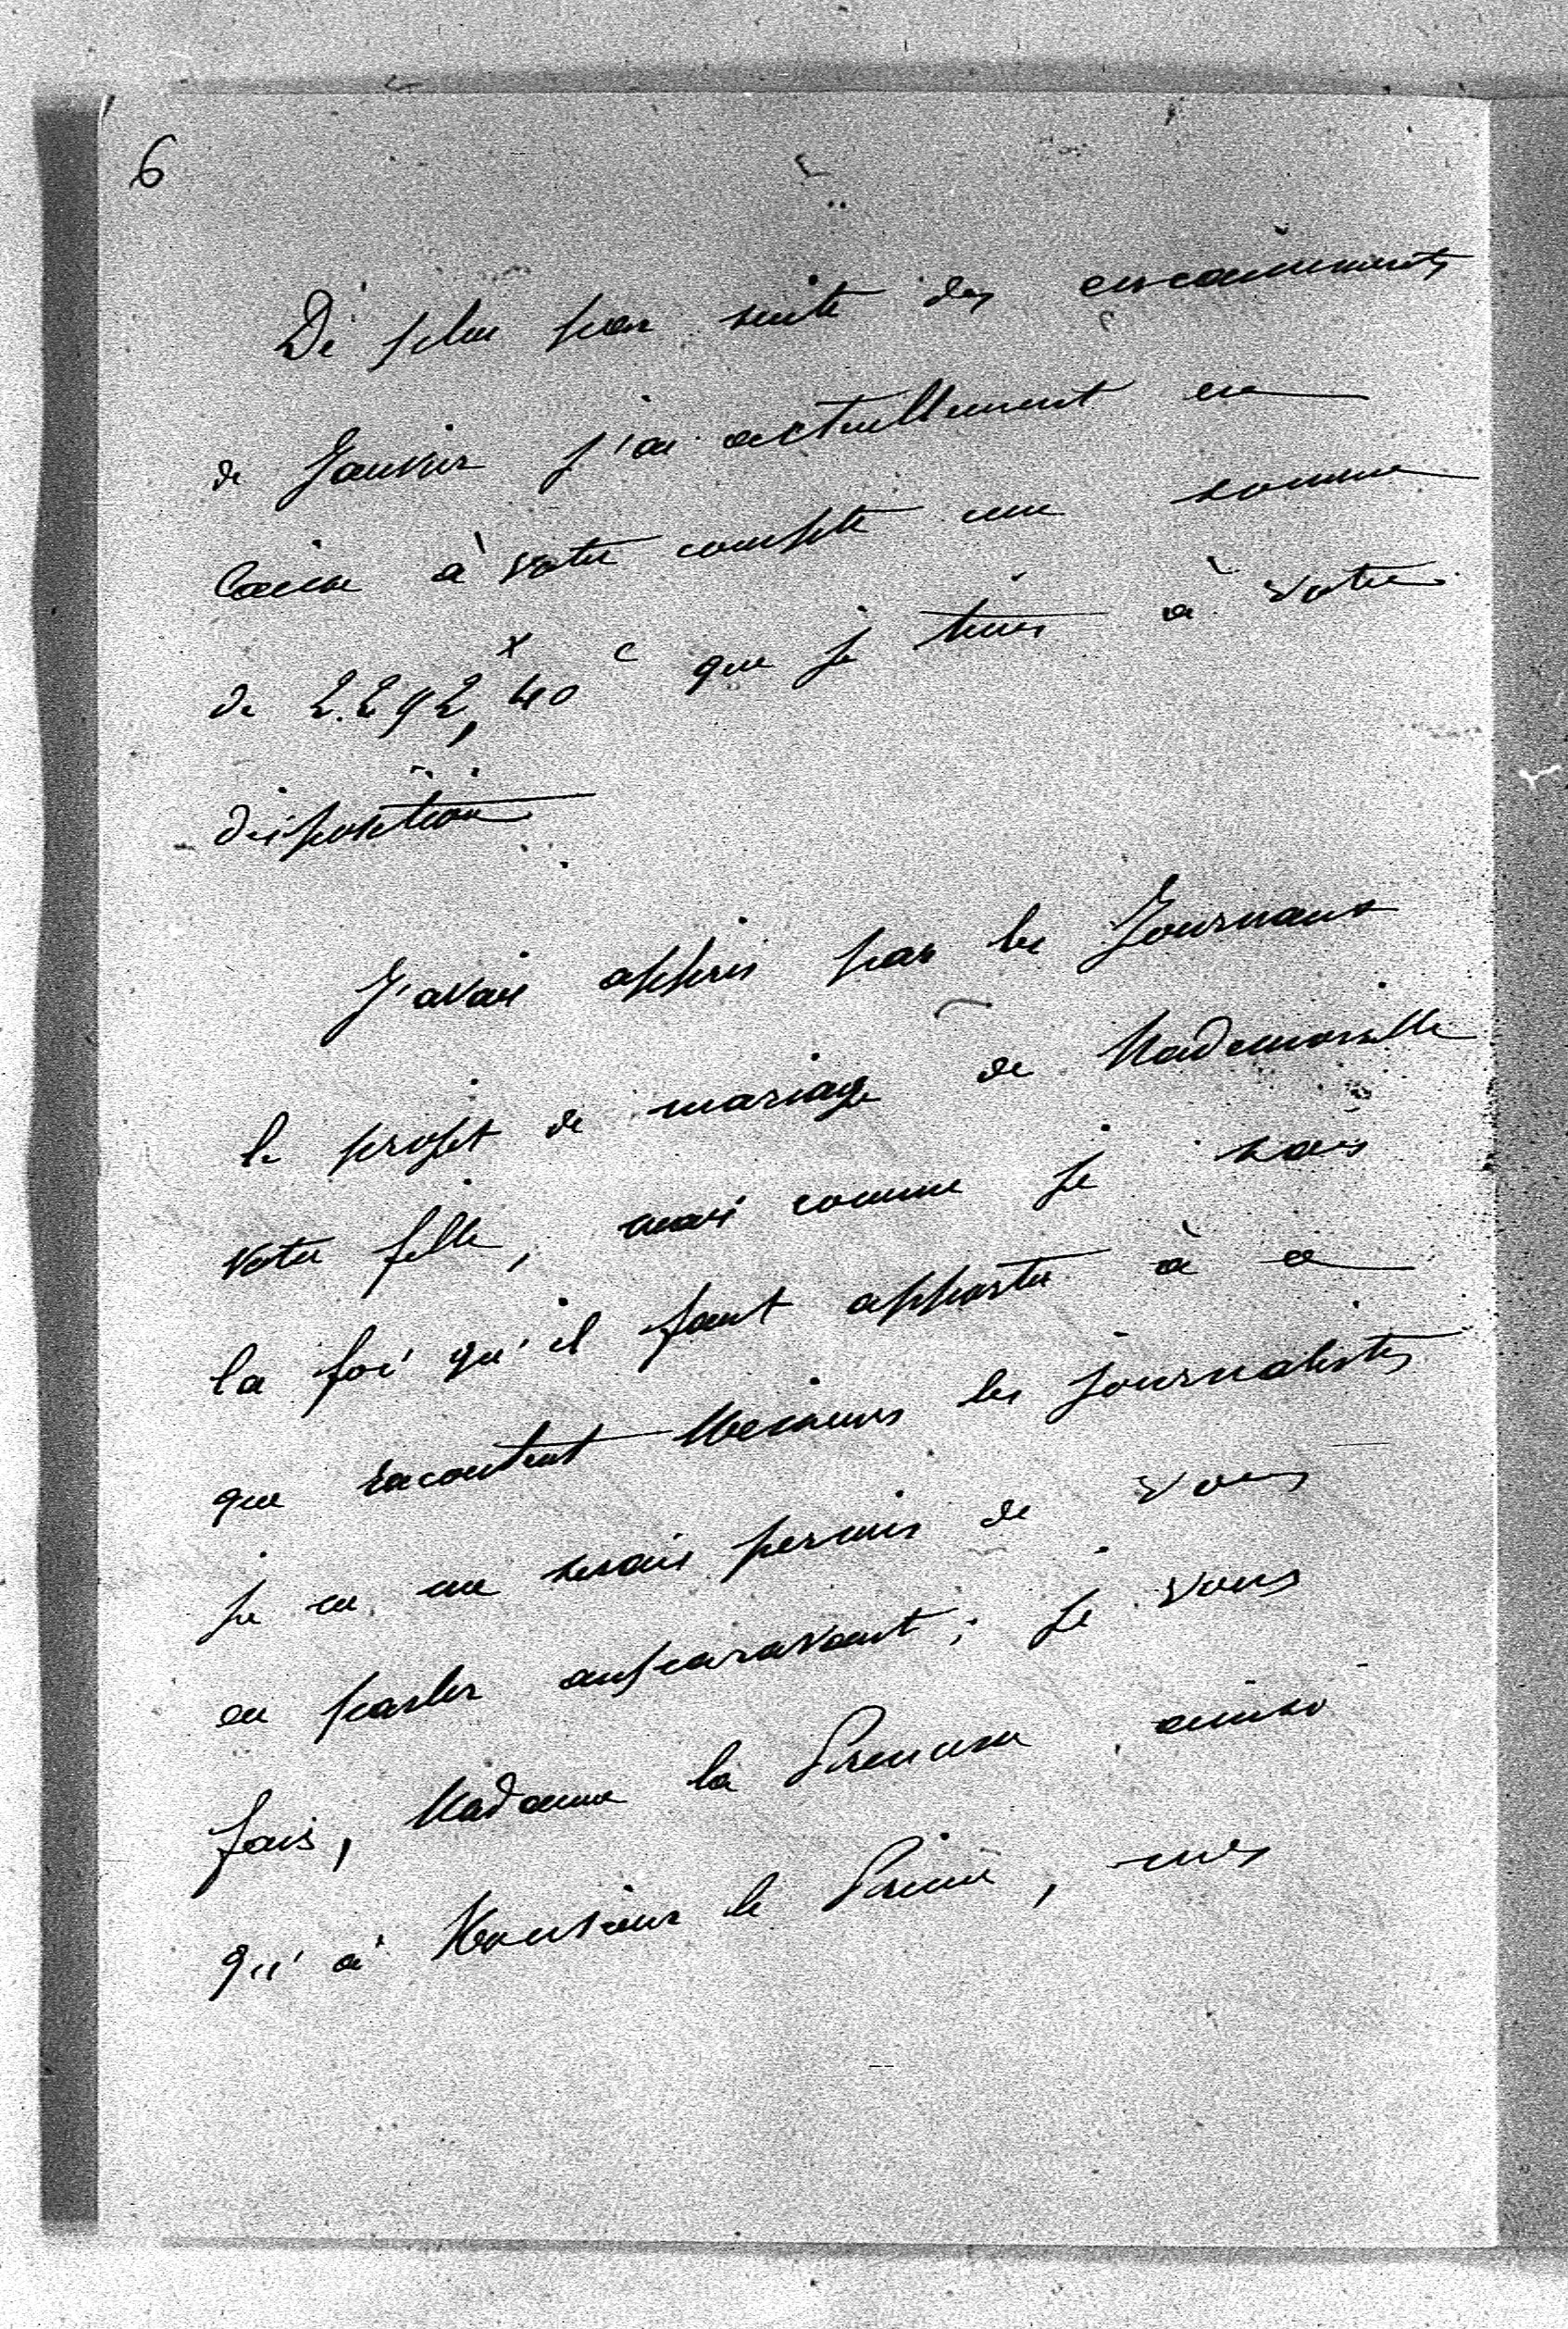 6
De plus par suite des encaissements
de Janvier j'ai actuellement en
Caisse à votre compte une somme
de 2.292,40 c que je tiens à votre
disposition
J'avais appris par les Journaux
le projet de mariage de Mademoiselle
votre fille, mais comme je sais
la foi qu'il faut apporter à ce
que racontent Messieurs les journalistes
je ne me serais permis de vous
en parler auparavant ; je vous
fais, Madame la Princesse, ainsi
qu'à Monsieur le Prince, mes